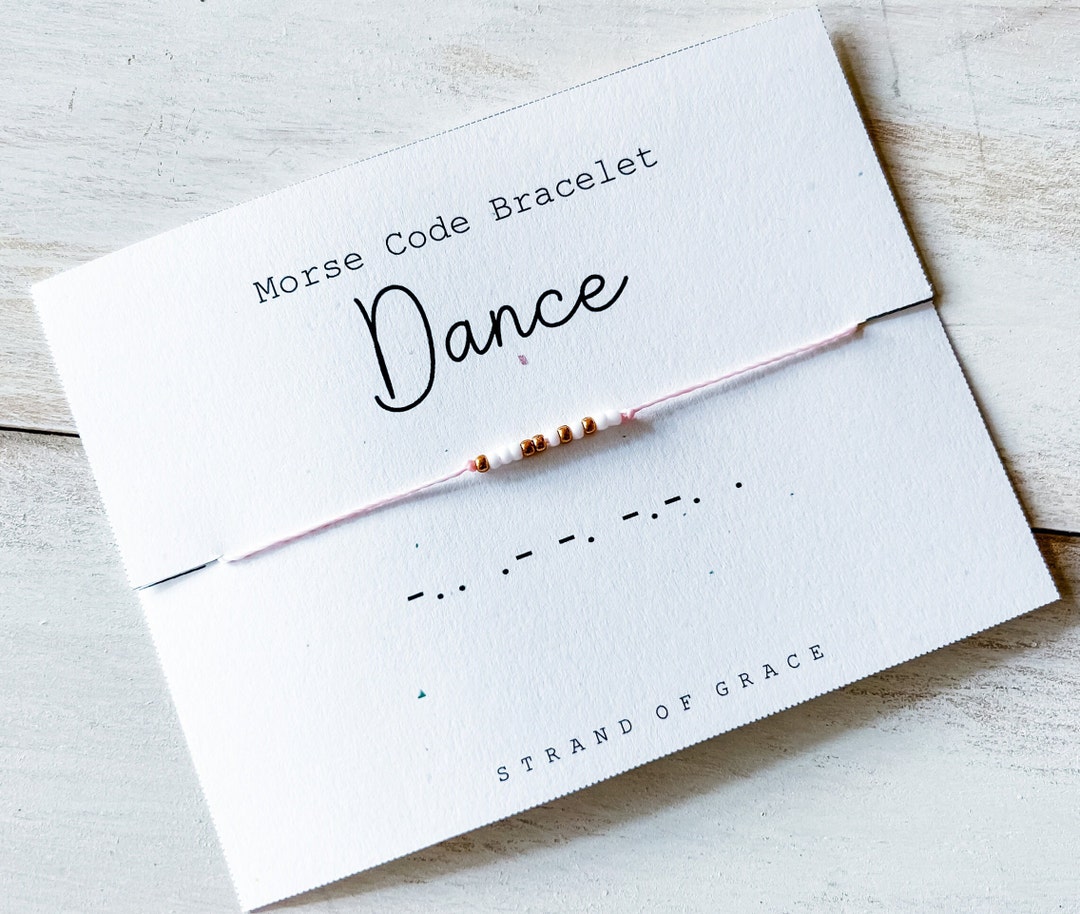 Morse Code Bracelet
Dance
-.. .- -. -.-. .
STRAND OF GRACE